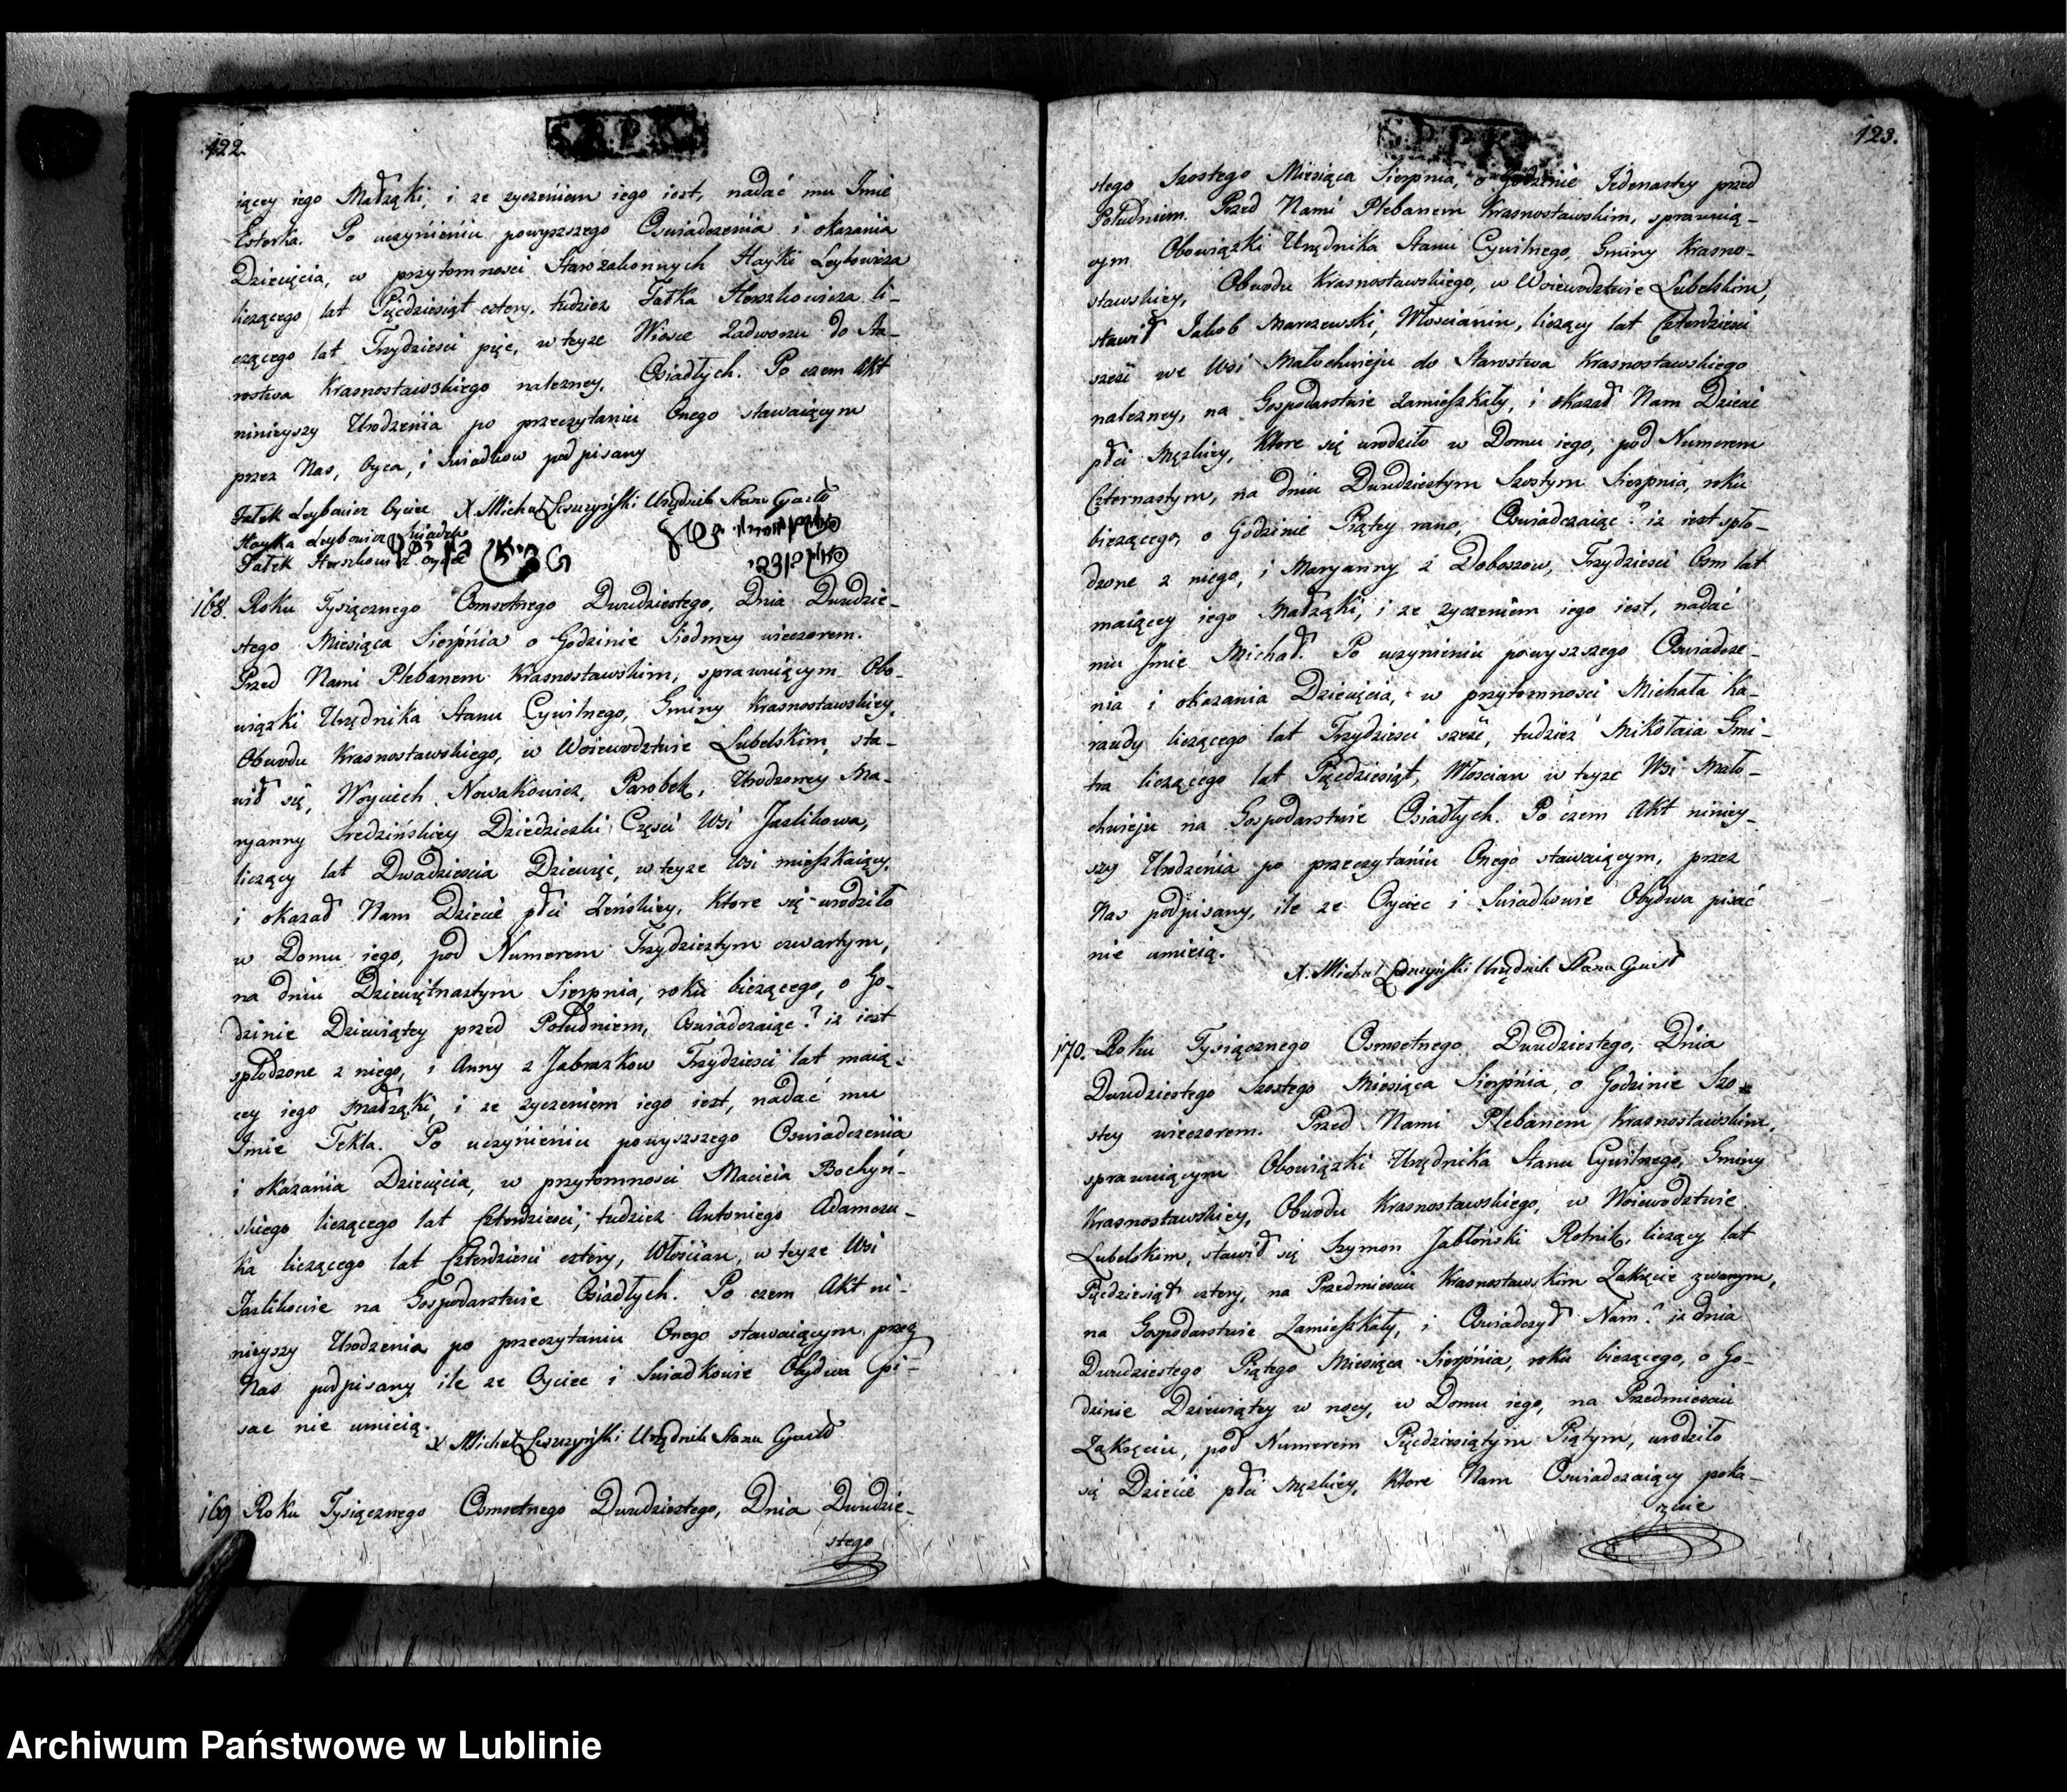 122.
S.P.P.K.
iącey iego Małząki, i ze zyczeniem iego iest, nadać mu Imie
Esterka. Po uczynieniu powyszszego Oswiadczenia i okazania
Dziecięcia, w przytomnosci Starozakonnych Hayki Leybowicza
liczącego lat Pięćdziesiąt cztery, tudziez Fałka Herszkowicza li-
czącego lat Trzydziesci pięc, w teyze Wiosce Zadworzu do Sta-
rostwa Krasnostawskiego nalezney, Osiadłych. Po czem Akt
ninieyszy Urodzenia po przeczytaniu Onego stawaiącym
przez Nas, Oyca, i Swiadkow podpisany
Fałek Leybowicz Oyciec X. Michał Leszczyński Urzędnik Stanu Cywil
Hayka Leybowicz Swiadek
Fałek Herszkowicz
168. Roku Tysiącznego Osmsetnego Dwudziestego, Dnia Dwudzie-
stego Miesiąca Sierpnia o Godzinie Siodmey wieczorem.
Przed Nami Plebanem Krasnostawskim, sprawuiącym Obo-
wiązki Urzędnika Stanu Cywilnego, Gminy Krasnostawskiey,
Obwodu Krasnostawskiego, w Woiewodztwie Lubelskim, sta-
wił się, Woyciech Nowakowicz, Parobek, Urodzoney Ma-
ryanny Sredzińskiey Dziedziczki Częsci Wsi Jaslikowa,
liczący lat Dwadziescia Dziewięc, w teyze Wsi mieszkaiący,
i okazał Nam Dziecie płci Zeńskiey, ktore się urodziło
w Domu iego, pod Numerem Trzydziestym czwartym,
na dniu Dziewiętnastym Sierpnia, roku biezącego, o Go-
dzinie Dziewiątey przed Południem, Oswiadczaiąc? iz iest
spłodzone z niego, i Anny z Jabrzkow Trzydziesci lat maią-
cey iego Małząki, i ze zyczeniem iego iest, nadać mu
Imie Tekla. Po uczynieniu powyszszego Oswiadczenia
i okazania Dziecięcia, w przytomnosci Macieia Bochyń-
skiego liczącego lat Czterdziesci, tudziez Antoniego Adamczu-
ka liczącego lat Czterdziesci cztery, Włoscian, w teyze Wsi
Jaslikowie na Gospodarstwie Osiadłych. Po czem Akt ni-
nieyszy Urodzenia po przeczytaniu Onego stawaiącym, przez
Nas podpisany ile ze Oyciec i Swiadkowie Obydwa pi-
sac nie umieią.
X Michał Leszczyński Urzędnik Stanu Cywil
169 Roku Tysiącznego Osmsetnego Dwudziestego, Dnia Dwudzie-
stego
123.
S.P.P.K.
stego Szostego Miesiąca Sierpnia, o Godzinie Jedenastey przed
Południem. Przed Nami Plebanem Krasnostawskim, sprawuią-
cym Obowiązki Urzędnika Stanu Cywilnego, Gminy Krasno-
stawskiey, Obwodu Krasnostawskiego, w Woiewodztwie Lubelskim,
stawił Jakob Marczewski, Włoscianin, liczący lat Czterdziesci
szesć we Wsi Małochwieju do Starostwa Krasnostawskiego
nalezney, na Gospodarstwie zamieszkały, i okazał Nam Dziecie
płci męzkiey, ktore się urodziło w Domu iego, pod Numerem
Czternastym, na dniu Dwudziestym Szostym Sierpnia, roku
biezącego, o Godzinie Piątey rano, Oswiadczaiąc? iz iest spło-
dzone z niego, i Maryanny z Doboszow, Trzydziesci Osm lat
maiącey iego Małząki, i ze zyczeniem iego iest, nadać
mu Imie Michał. Po uczynieniu powyszszego Oswiadcze-
nia i okazania Dziecięcia, w przytomnosci Michała Ka-
raudy liczącego lat Trzydziesci szesć, tudziez Mikołaia Gmi-
tra liczącego lat Pięćdziesiąt, Włoscian w teyze Wsi Mało-
chwieju na Gospodarstwie Osiadłych. Po czem Akt niniey-
szy Urodzenia po przeczytaniu Onego stawaiącym, przez
Nas podpisany, ile ze Oyciec i Swiadkowie Obydwa pisać
nie umieią.
X. Michał Leszczyński Urzędnik Stanu Cywil
170. Roku Tysiącznego Osmsetnego Dwudziestego, Dnia
Dwudziestego Szostego Miesiąca Sierpnia, o Godzinie Szo-
stey wieczorem. Przed Nami Plebanem Krasnostawskim,
sprawuiącym Obowiązki Urzędnika Stanu Cywilnego, Gminy
Krasnostawskiey, Obwodu Krasnostawskiego, w Woiewodztwie
Lubelskim, stawił się Szymon Jabłoński Rolnik, liczący lat
Pięćdziesiąt cztery, na Przedmiesciu Krasnostawskim Zakręcie zwanym,
na Gospodarstwie Zamieszkały, i Oswiadczył Nam? iz dnia
Dwudziestego Piątego Miesiąca Sierpnia, roku biezącego, o Go-
dzinie Dziewiątey w nocy, w Domu iego, na Przedmiesciu
Zakręciu, pod Numerem Pięćdziesiątym Piątym, urodziło
się Dziecie płci męzkiey, ktore Nam Oswiadczaiący poka-
zuie
Archiwum Państwowe w Lublinie